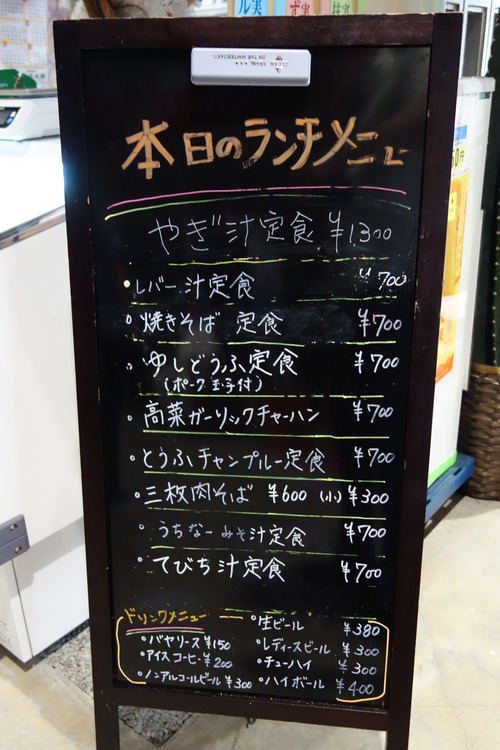 本日のランチメニュー
やぎ汁定食 ¥1,300
・レバー汁定食 ¥700
・焼きそば 定食 ¥700
・ゆしどうふ定食 ¥700
(ポーク玉子付)
・高菜ガーリックチャーハン ¥700
・とうふチャンプルー定食 ¥700
・三枚肉そば ¥600 (小) ¥300
・うちなーみそ汁定食 ¥700
・てびち汁定食 ¥700
ドリンクメニュー
・バヤリース ¥150
・アイスコーヒー ¥200
・ノンアルコールビール ¥300
・生ビール ¥380
・レディースビール ¥300
・チューハイ ¥300
・ハイボール ¥400